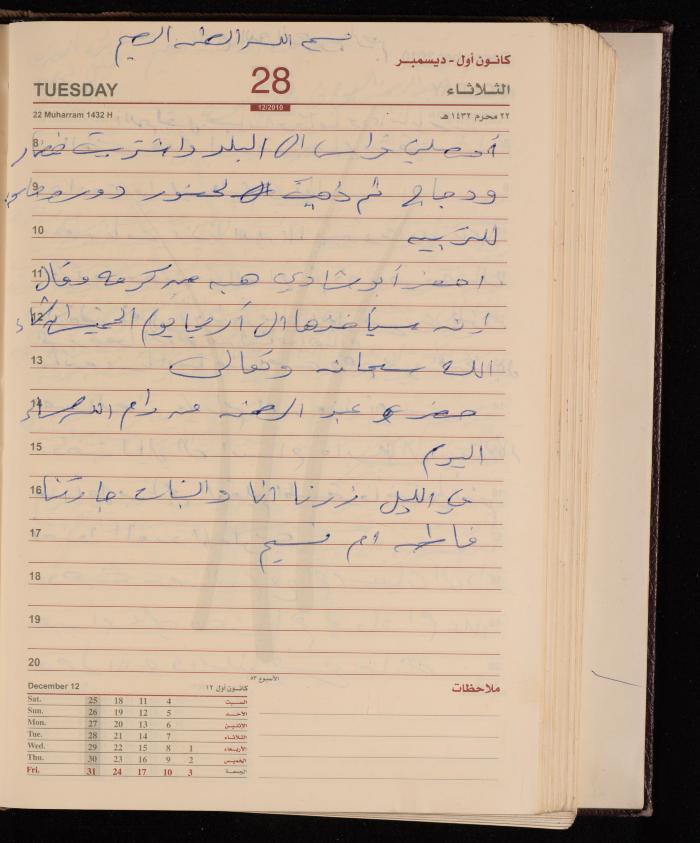 بسم الله الرحمن الرحيم
كانون أول - ديسمبر
28
TUESDAY
الثلاثاء
12/2010
22 Muharram 1432 H
٢٢ محرم ١٤٣٢ هـ
8 أوصلني فراس الى البلد واشتريت خضار
9 ودجاج ثم ذهبت لحضور دورة
10 للتربيه
11 احضر أبو شادي هبه من كرمه وقال
12 انه سيأخذها الى أريحا يوم الخميس ان شاء
13 الله سبحانه وتعالى
14 حضر عبد الرحمن من رام الله مساء
15 اليوم
16 في الليل زرنا انا والبنات جارتنا
17 فاطمه ام
18
19
20
الأسبوع ٥٣
December 12
كانون أول ١٢
ملاحظات
Sat. 25 18 11 4 السبت
Sun. 26 19 12 5 الأحد
Mon. 27 20 13 6 الإثنين
Tue. 28 21 14 7 الثلاثاء
Wed. 29 22 15 8 1 الأربعاء
Thu. 30 23 16 9 2 الخميس
Fri. 31 24 17 10 3 الجمعة